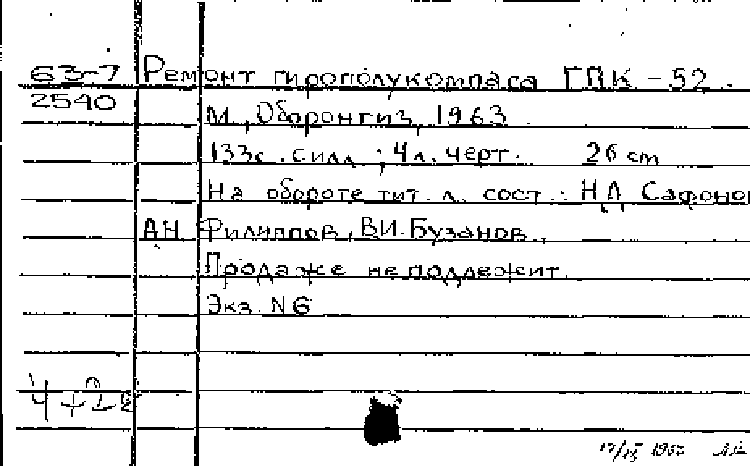 63-7 Ремонт гирополукомпаса ГПК-52.
2540
М., Оборонгиз, 1963
133с. с илл.; 4 л. черт. 26 cm
На обороте тит. л. сост.: Н.Л. Сафонов
А.Н. Филиппов, В.И. Бузанов.
Продаже не подлежит.
Экз. N6